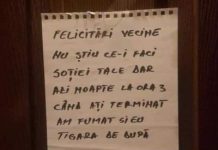 FELICITĂRI VECINE
NU ȘTIU CE-I FACI
SOȚIEI TALE DAR
AZI NOAPTE LA ORA 3
CÂND AȚI TERMINAT
AM FUMAT SI EU
TIGARA DE DUPĂ